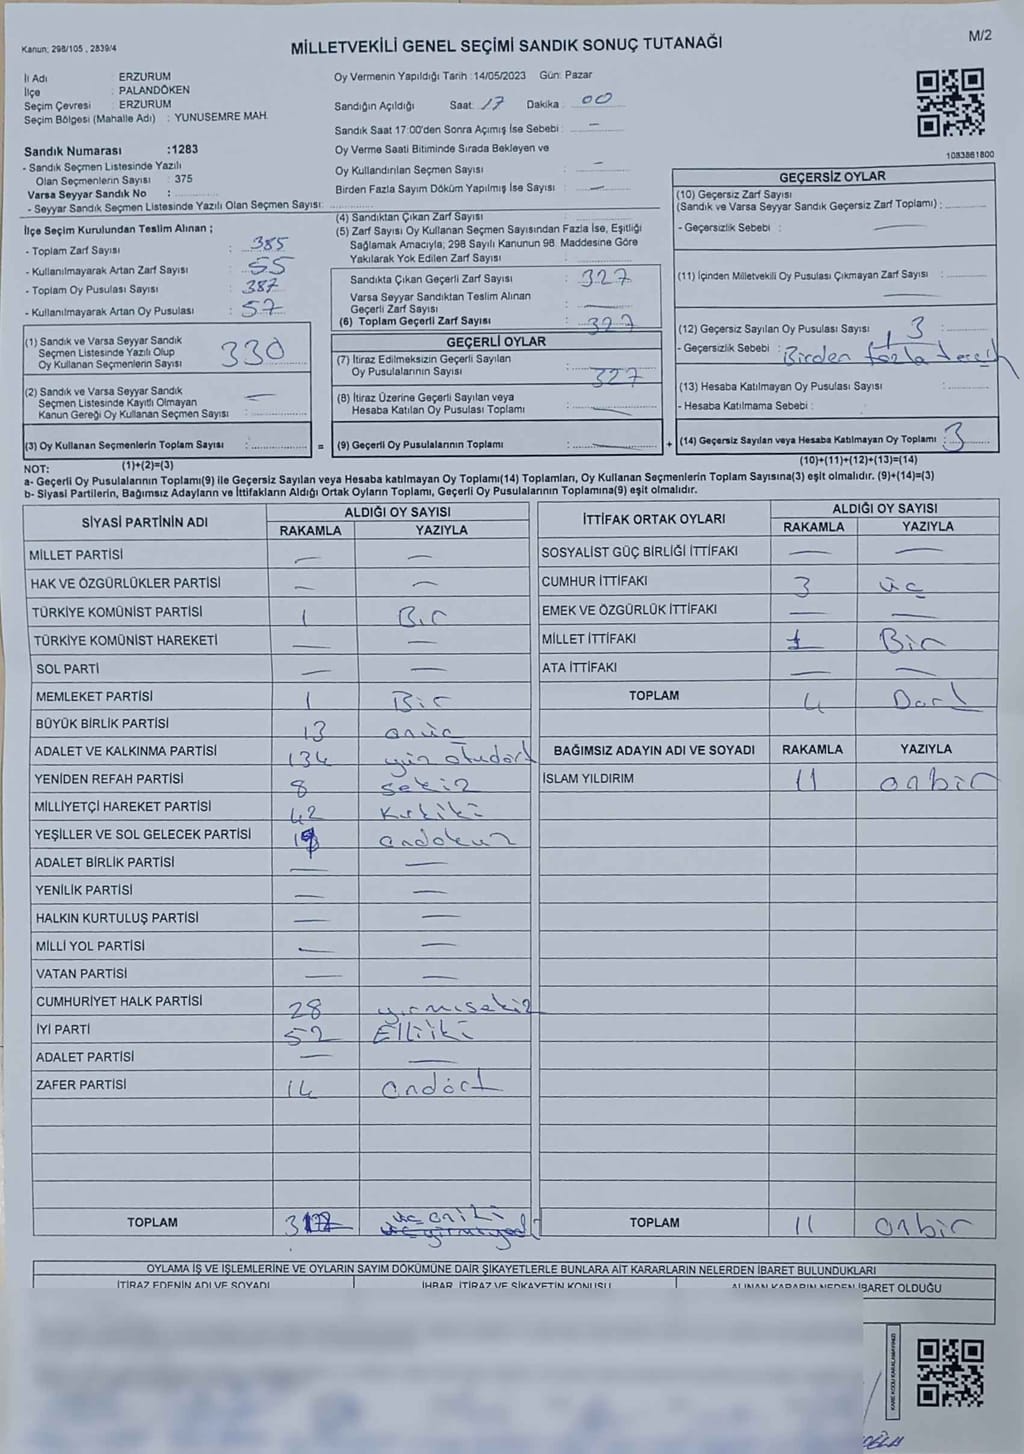 Kanun; 298/105 , 2839/4
MİLLETVEKİLİ GENEL SEÇİMİ SANDIK SONUÇ TUTANAĞI
M/2
İl Adı : ERZURUM
İlçe : PALANDÖKEN
Seçim Çevresi : ERZURUM
Seçim Bölgesi (Mahalle Adı) : YUNUSEMRE MAH.
Sandık Numarası :1283
- Sandık Seçmen Listesinde Yazılı
Olan Seçmenlerin Sayısı : 375
Varsa Seyyar Sandık No :
- Seyyar Sandık Seçmen Listesinde Yazılı Olan Seçmen Sayısı:
Oy Vermenin Yapıldığı Tarih :14/05/2023 Gün: Pazar
Sandığın Açıldığı Saat: 17 Dakika : 00
Sandık Saat 17:00'den Sonra Açımış İse Sebebi : —
Oy Verme Saati Bitiminde Sırada Bekleyen ve
Oy Kullandırılan Seçmen Sayısı : —
Birden Fazla Sayım Döküm Yapılmış İse Sayısı : —
1083861800
İlçe Seçim Kurulundan Teslim Alınan ;
- Toplam Zarf Sayısı : 385
- Kullanılmayarak Artan Zarf Sayısı : 55
- Toplam Oy Pusulası Sayısı : 387
- Kullanılmayarak Artan Oy Pusulası : 57
(1) Sandık ve Varsa Seyyar Sandık
Seçmen Listesinde Yazılı Olup
Oy Kullanan Seçmenlerin Sayısı : 330
(2) Sandık ve Varsa Seyyar Sandık
Seçmen Listesinde Kayıtlı Olmayan
Kanun Gereği Oy Kullanan Seçmen Sayısı : —
(3) Oy Kullanan Seçmenlerin Toplam Sayısı :
(1)+(2)=(3)
(4) Sandıktan Çıkan Zarf Sayısı :
(5) Zarf Sayısı Oy Kullanan Seçmen Sayısından Fazla İse, Eşitliği
Sağlamak Amacıyla; 298 Sayılı Kanunun 98. Maddesine Göre
Yakılarak Yok Edilen Zarf Sayısı :
Sandıkta Çıkan Geçerli Zarf Sayısı : 327
Varsa Seyyar Sandıktan Teslim Alınan
Geçerli Zarf Sayısı : —
(6) Toplam Geçerli Zarf Sayısı : 327
GEÇERLİ OYLAR
(7) İtiraz Edilmeksizin Geçerli Sayılan
Oy Pusulalarının Sayısı : 327
(8) İtiraz Üzerine Geçerli Sayılan veya
Hesaba Katılan Oy Pusulası Toplamı : —
= (9) Geçerli Oy Pusulalarının Toplamı : —
GEÇERSİZ OYLAR
(10) Geçersiz Zarf Sayısı
(Sandık ve Varsa Seyyar Sandık Geçersiz Zarf Toplamı) :
- Geçersizlik Sebebi : —
(11) İçinden Milletvekili Oy Pusulası Çıkmayan Zarf Sayısı :
—
(12) Geçersiz Sayılan Oy Pusulası Sayısı : 3
- Geçersizlik Sebebi : Birden fazla tercih
(13) Hesaba Katılmayan Oy Pusulası Sayısı :
- Hesaba Katılmama Sebebi :
+ (14) Geçersiz Sayılan veya Hesaba Katılmayan Oy Toplamı : 3
(10)+(11)+(12)+(13)=(14)
NOT:
a- Geçerli Oy Pusulalarının Toplamı(9) ile Geçersiz Sayılan veya Hesaba katılmayan Oy Toplamı(14) Toplamları, Oy Kullanan Seçmenlerin Toplam Sayısına(3) eşit olmalıdır. (9)+(14)=(3)
b- Siyasi Partilerin, Bağımsız Adayların ve İttifakların Aldığı Ortak Oyların Toplamı, Geçerli Oy Pusulalarının Toplamına(9) eşit olmalıdır.
SİYASİ PARTİNİN ADI ALDIĞI OY SAYISI
RAKAMLA YAZIYLA
MİLLET PARTİSİ — —
HAK VE ÖZGÜRLÜKLER PARTİSİ — —
TÜRKİYE KOMÜNİST PARTİSİ 1 Bir
TÜRKİYE KOMÜNİST HAREKETİ — —
SOL PARTİ — —
MEMLEKET PARTİSİ 1 Bir
BÜYÜK BİRLİK PARTİSİ 13 onüç
ADALET VE KALKINMA PARTİSİ 134 yüz otudört
YENİDEN REFAH PARTİSİ 8 sekiz
MİLLİYETÇİ HAREKET PARTİSİ 42 Kırkiki
YEŞİLLER VE SOL GELECEK PARTİSİ 19 ondokuz
ADALET BİRLİK PARTİSİ — —
YENİLİK PARTİSİ — —
HALKIN KURTULUŞ PARTİSİ — —
MİLLİ YOL PARTİSİ — —
VATAN PARTİSİ — —
CUMHURİYET HALK PARTİSİ 28 yirmisekiz
İYİ PARTİ 52 Elliiki
ADALET PARTİSİ — —
ZAFER PARTİSİ 14 ondört
TOPLAM 312 üç oniki
İTTİFAK ORTAK OYLARI ALDIĞI OY SAYISI
RAKAMLA YAZIYLA
SOSYALİST GÜÇ BİRLİĞİ İTTİFAKI — —
CUMHUR İTTİFAKI 3 üç
EMEK VE ÖZGÜRLÜK İTTİFAKI — —
MİLLET İTTİFAKI 1 Bir
ATA İTTİFAKI — —
TOPLAM 4 Dört
BAĞIMSIZ ADAYIN ADI VE SOYADI RAKAMLA YAZIYLA
İSLAM YILDIRIM 11 onbir
TOPLAM 11 onbir
OYLAMA İŞ VE İŞLEMLERİNE VE OYLARIN SAYIM DÖKÜMÜNE DAİR ŞİKAYETLERLE BUNLARA AİT KARARLARIN NELERDEN İBARET BULUNDUKLARI
İTİRAZ EDENİN ADI VE SOYADI İHBAR, İTİRAZ VE ŞİKAYETİN KONUSU ALINAN KARARIN NEDEN İBARET OLDUĞU
KARE KODU KARALAMAYINIZ!